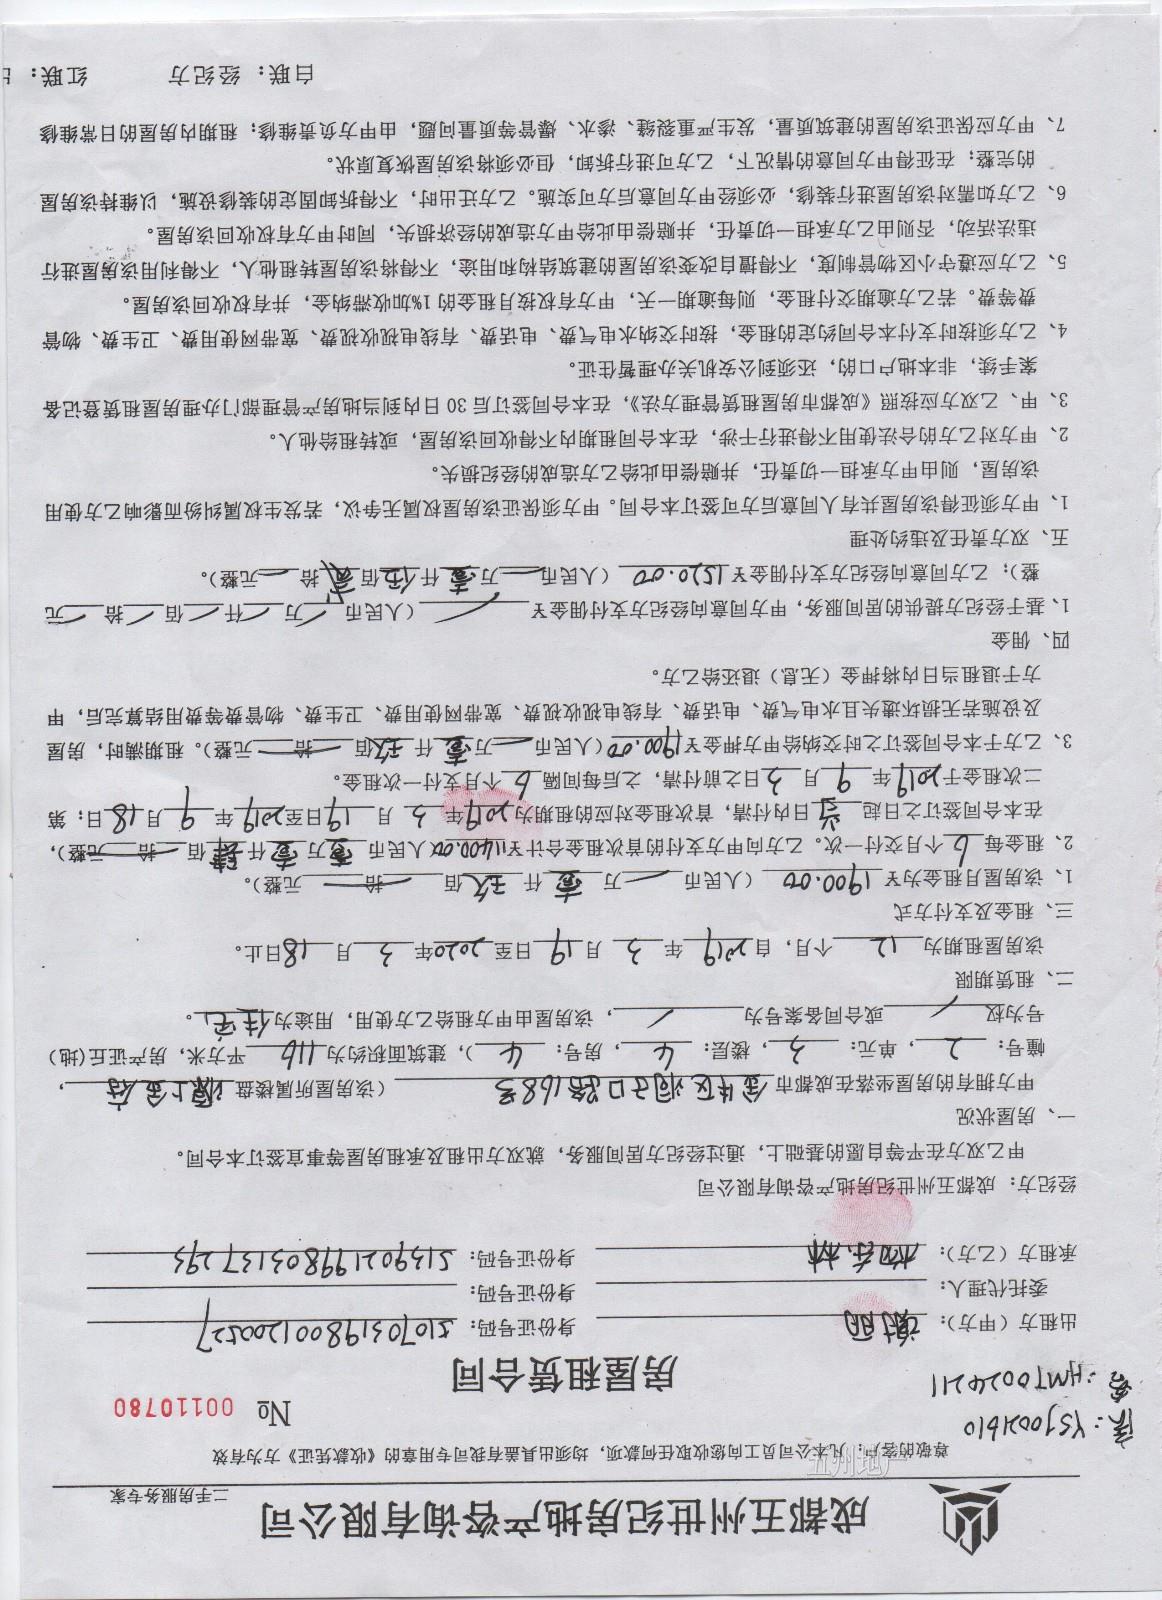 成都五州世纪房地产咨询有限公司
二手房服务专家
尊敬的客户：凡本公司员工向您收取任何款项，均须出具盖有我司专用章的《收款凭证》方为有效
五州地产
房：YSJ0021610
客：HMT0026211
№ 00110780
房屋租赁合同
出租方（甲方）：谢丽 身份证号码：510703198001200527
委托代理人： 身份证号码：
承租方（乙方）： 身份证号码：513902199803137293
经纪方：成都五州世纪房地产咨询有限公司
甲乙双方在平等自愿的基础上，通过经纪方居间服务，就双方出租及承租房屋等事宜签订本合同。
一、房屋状况
甲方拥有的房屋坐落在成都市金牛区洞子口路168号（该房屋所属楼盘源上金府，
幢号：2，单元：3，楼层：4，房号：4），建筑面积约为116平方米，房产证丘(地)
号为权／或合同备案号为／，该房屋由甲方租给乙方使用，用途为住宅。
二、租赁期限
该房屋租期为12个月，自2019年3月19日至2020年3月18日止。
三、租金及支付方式
1、该房屋月租金为￥1900.00（人民币一万壹仟玖佰一拾一元整）。
2、租金每6个月交付一次。乙方向甲方支付的首次租金合计￥11400.00（人民币壹万壹仟肆佰一拾一元整），
在本合同签订之日起当日内付清，首次租金对应的租期为2019年3月19日至2019年9月18日；第
二次租金于2019年9月3日之前付清，之后每间隔6个月支付一次租金。
3、乙方于本合同签订之时交纳给甲方押金￥1900.00（人民币一万壹仟玖佰一拾一元整）。租期满时，房屋
及设施若无损坏遗失且水电气费、电话费、有线电视收视费、宽带网使用费、卫生费、物管费等费用结算完后，甲
方于退租当日内将押金（无息）退还给乙方。
四、佣金
1、基于经纪方提供的居间服务，甲方同意向经纪方支付佣金￥／（人民币／万／仟／佰／拾／元
整）；乙方同意向经纪方支付佣金￥1520.00（人民币一万壹仟伍佰贰拾一元整）。
五、双方责任及违约处理
1、甲方须征得该房屋共有人同意后方可签订本合同。甲方须保证该房屋权属无争议，若发生权属纠纷而影响乙方使用
该房屋，则由甲方承担一切责任，并赔偿由此给乙方造成的经纪损失。
2、甲方对乙方的合法使用不得进行干涉，在本合同租期内不得收回该房屋，或转租给他人。
3、甲、乙双方应按照《成都市房屋租赁管理方法》，在本合同签订后30日内到当地房产管理部门办理房屋租赁登记备
案手续，非本地户口的，还须到公安机关办理暂住证。
4、乙方须按时支付本合同约定的租金，按时交纳水电气费、电话费、有线电视收视费、宽带网使用费、卫生费、物管
费等费。若乙方逾期交付租金，则每逾期一天，甲方有权按月租金的1%加收滞纳金，并有权收回该房屋。
5、乙方应遵守小区物管制度，不得擅自改变该房屋的建筑结构和用途，不得将该房屋转租他人，不得利用该房屋进行
违法活动，否则由乙方承担一切责任，并赔偿由此给甲方造成的经济损失，同时甲方有权收回该房屋。
6、乙方如需对该房屋进行装修，必须经甲方同意后方可实施。乙方迁出时，不得拆卸固定的装修设施，以维持该房屋
的完整；在征得甲方同意的情况下，乙方可进行拆卸，但必须将该房屋恢复原状。
7、甲方应保证该房屋的建筑质量，发生严重裂缝、渗水、爆管等质量问题，由甲方负责维修；租期内房屋的日常维修
白联：经纪方 红联：